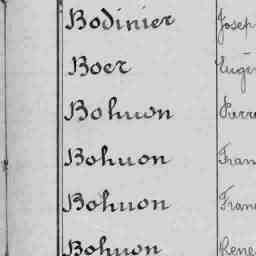 Bodinier Josep
Boer Eugè
Bohuon Pierre
Bohuon Fran
Bohuon Fran
Bohuon Rene